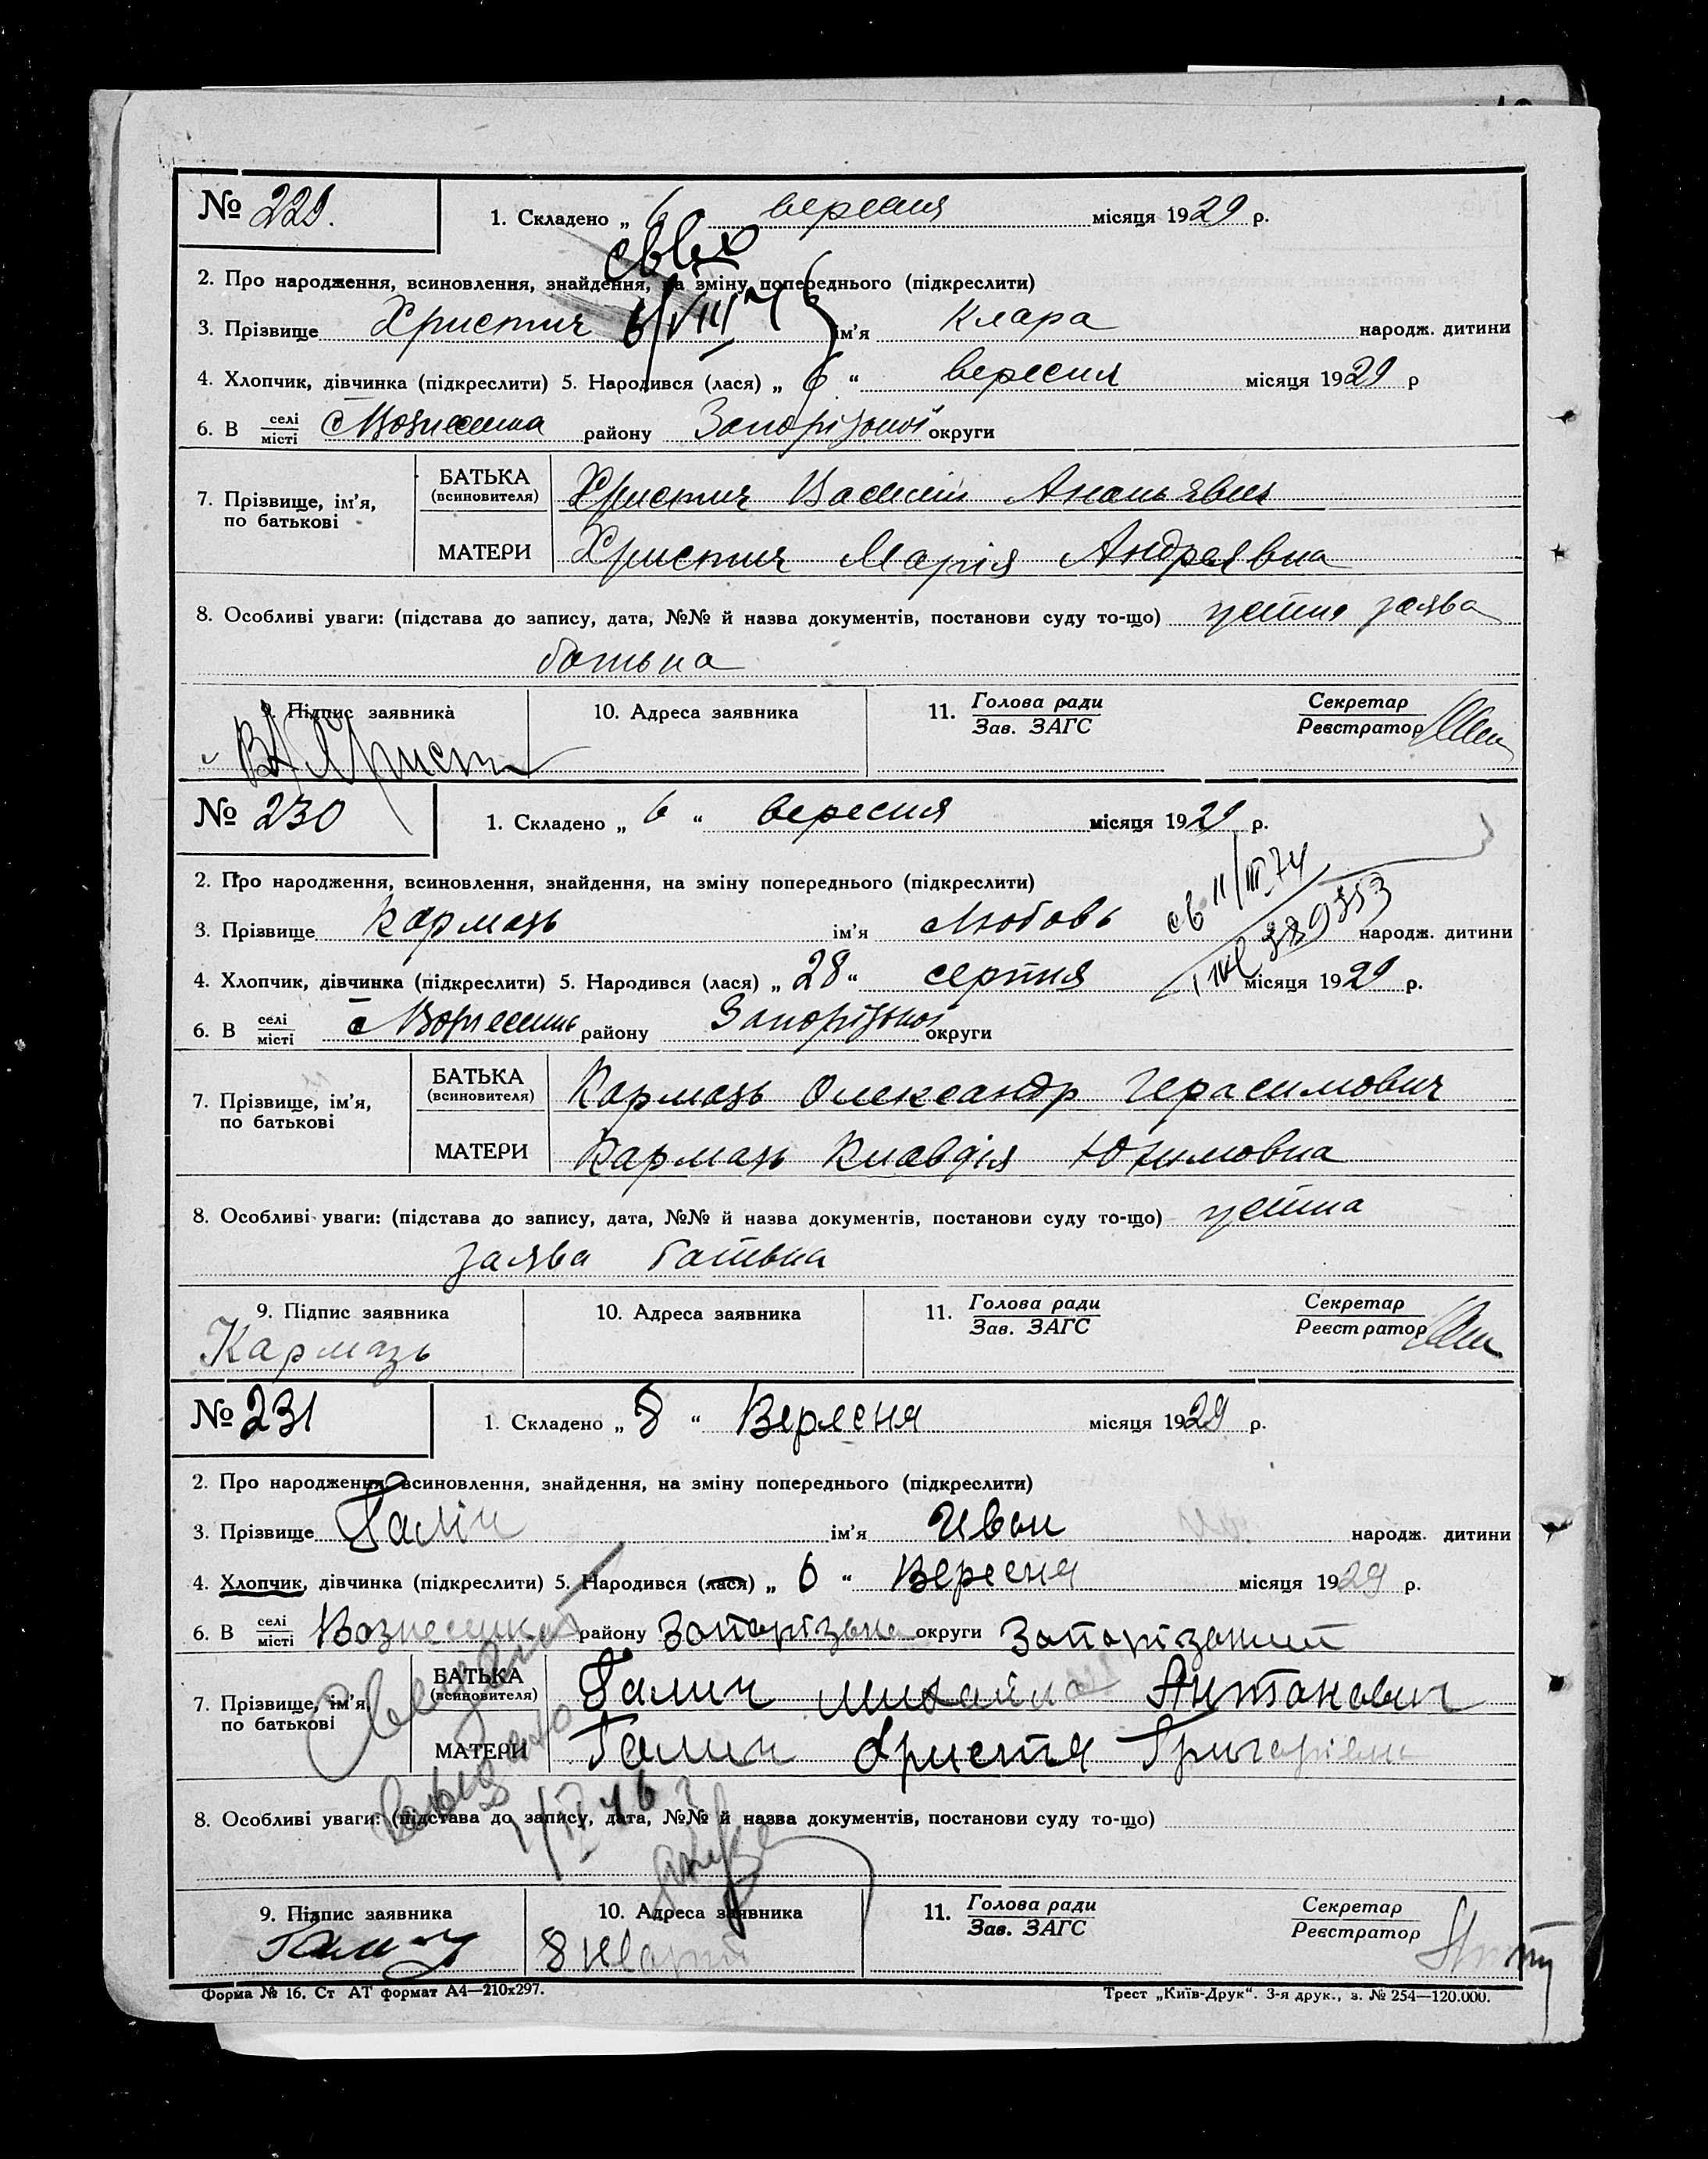 № 229. 1. Складено „ 6 вересня місяця 1929 р.
2. Про народження, всиновлення, знайдення, на зміну попереднього (підкреслити)
3. Прізвище Христич ім'я Клара народж. дитини
4. Хлопчик, дівчинка (підкреслити) 5. Народився (лася) „ 6 “ вересня місяця 1929 р
6. В селі/місті с Вознесенка району Запорізької округи
7. Прізвище, ім'я, по батькові
БАТЬКА (всиновителя) Христич Василій Ананьевич
МАТЕРИ Христич Марія Андреевна
8. Особливі уваги: (підстава до запису, дата, №№ й назва документів, постанови суду то-що) устна заява
батька
9. Підпис заявника 10. Адреса заявника 11. Голова ради/Зав. ЗАГС Секретар/Реєстратор
ВА Христ
№ 230 1. Складено „ 6 “ вересня місяця 1929 р.
2. Про народження, всиновлення, знайдення, на зміну попереднього (підкреслити)
св 11/III-74
389353
3. Прізвище Кармазь ім'я Любовь народж. дитини
4. Хлопчик, дівчинка (підкреслити) 5. Народився (лася) „ 28 “ серпня місяця 1929 р.
6. В селі/місті с Вознесенка району Запорізької округи
7. Прізвище, ім'я, по батькові
БАТЬКА (всиновителя) Кармазь Олександр Герасимович
МАТЕРИ Кармазь Клавдія Юхимовна
8. Особливі уваги: (підстава до запису, дата, №№ й назва документів, постанови суду то-що) устна
заява батька
9. Підпис заявника 10. Адреса заявника 11. Голова ради/Зав. ЗАГС Секретар/Реєстратор
Кармазь
№ 231 1. Складено „ 8 “ Вересня місяця 1929 р.
2. Про народження, всиновлення, знайдення, на зміну попереднього (підкреслити)
3. Прізвище Галіч ім'я Иван народж. дитини
4. Хлопчик, дівчинка (підкреслити) 5. Народився (лася) „ 6 “ Вересня місяця 1929 р.
6. В селі/місті Вознесенка району Запорізька округи Запорізький
7. Прізвище, ім'я, по батькові
БАТЬКА (всиновителя) Галич Михайло Антонович
МАТЕРИ Галич Христя Григорівна
8. Особливі уваги: (підстава до запису, дата, №№ й назва документів, постанови суду то-що)
9. Підпис заявника 10. Адреса заявника 11. Голова ради/Зав. ЗАГС Секретар/Реєстратор
Галич 8
Форма № 16. Ст АТ формат А4—210х297. Трест „Київ-Друк“. 3-я друк., з. № 254—120.000.